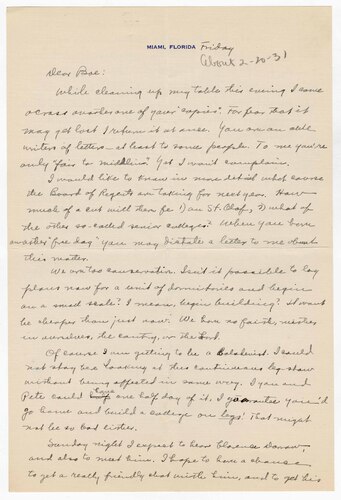 MIAMI, FLORIDA Friday
About 2-20-31
Dear Boe:
While cleaning up my table this evening I came
across another one of your "copies". For fear that it
may get lost I return it at once. You are an able
writer of letters - at least to some people. To me you're
only "fair to middlin". Yet I won't complain.
I would like to know in more detail what course
the Board of Regents are taking for next year. How
much of a cut will there be 1) at St. Olaf, 2) what of
the other so-called senior colleges? When you have
another free day you may dictate a letter to me about
this matter.
We are too conservative. Isn't it possible to lay
plans now for a unit of dormitories and begin
on a small scale? I mean, begin building? It won't
be cheaper than just now. We have no faith, neither
in ourselves, the country, or the Lord.
Of course I am getting to be a Bolshevist. I could
not stay here looking at this continuous leg show
without being affected in some way. If you and
Pete could have one half day of it. I guarantee you'd
go home and build a college on legs! That might
not be so bad either.
Sunday night I expect to hear Clarence Darrow,
and also to meet him. I hope to have a chance
to get a really friendly chat with him, and to get his